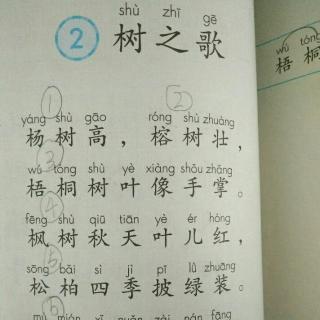 shù zhī gē
2 树之歌
① ②
yáng shù gāo róng shù zhuàng
杨树高，榕树壮，
③
wú tóng shù yè xiàng shǒu zhǎng
梧桐树叶像手掌。
④
fēng shù qiū tiān yè ér hóng
枫树秋天叶儿红，
⑤
sōng bǎi sì jì pī lǜ zhuāng
松柏四季披绿装。
⑥
mù mián xǐ nuǎn zài nán fāng
wú tóng
梧桐